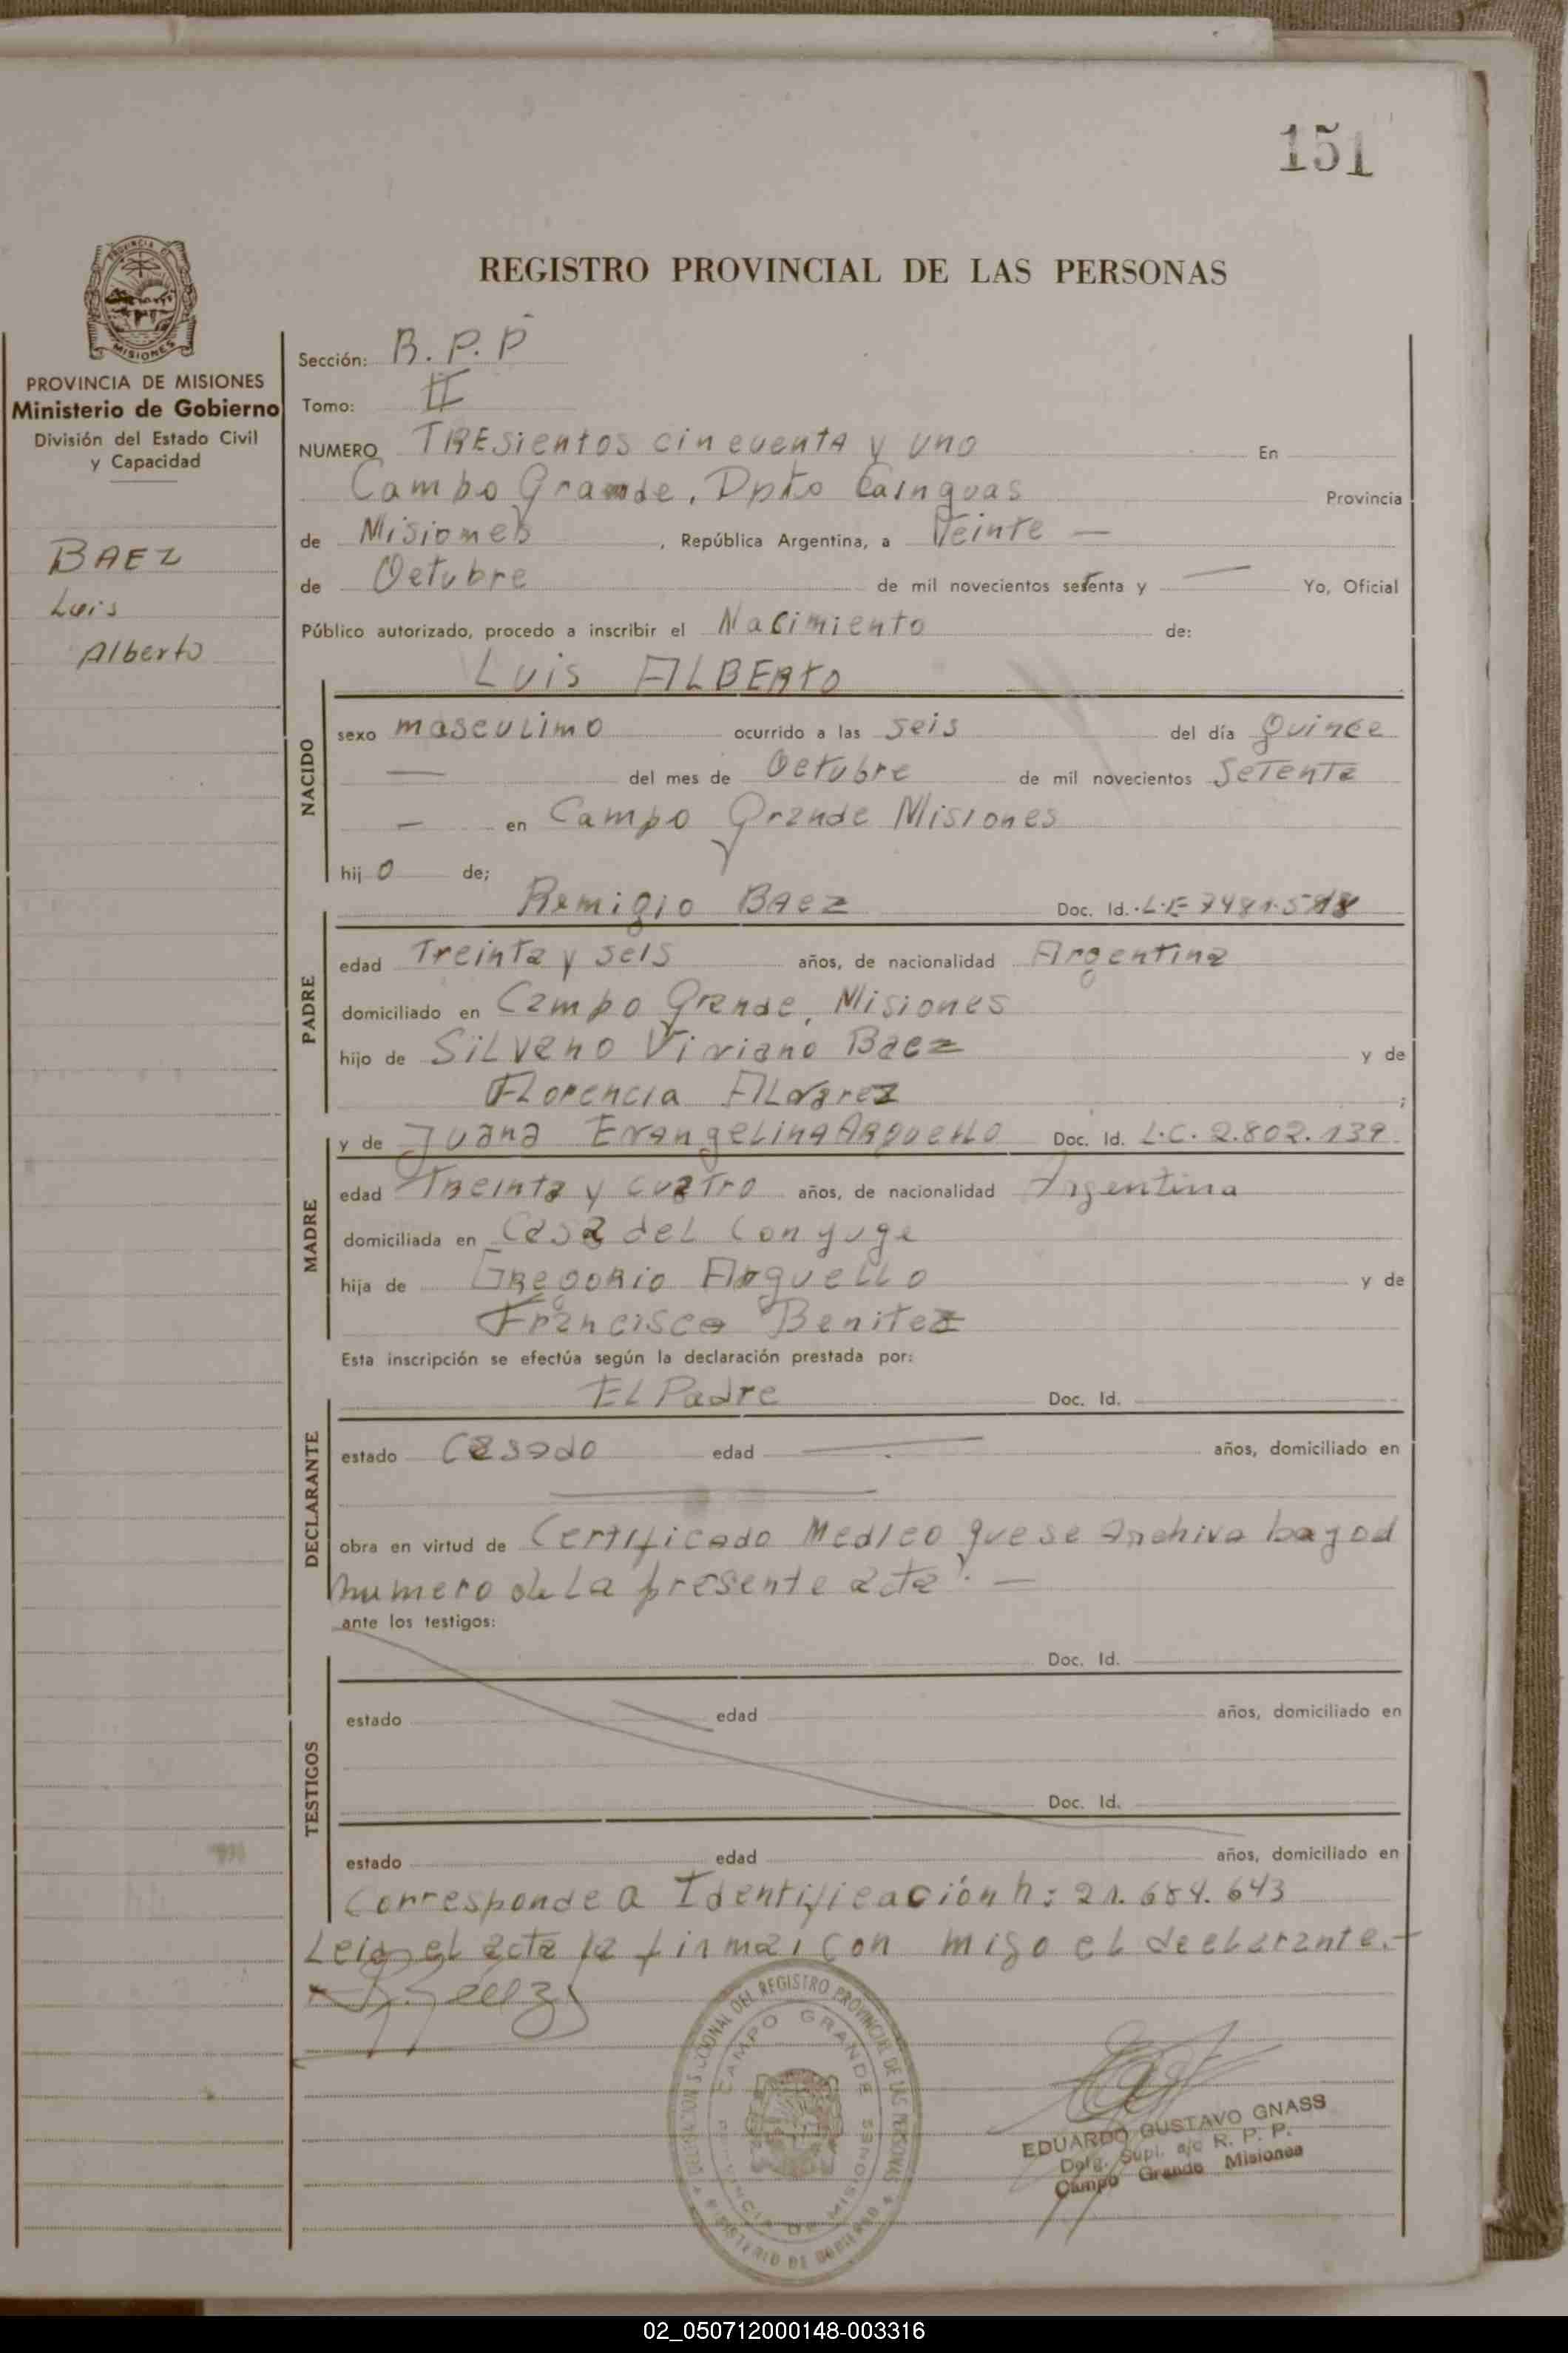 151
REGISTRO PROVINCIAL DE LAS PERSONAS
PROVINCIA DE MISIONES
Ministerio de Gobierno
División del Estado Civil
y Capacidad
BAEZ
Luis
Alberto
Sección: R.P.P
Tomo: II
NUMERO TRESientos cincuenta y uno En
Campo Grande, Dpto Cainguas Provincia
de Misiones, República Argentina, a Veinte —
de Octubre de mil novecientos setenta y — Yo, Oficial
Público autorizado, procedo a inscribir el Nacimiento de:
Luis ALBERto
NACIDO
sexo masculino ocurrido a las seis del día Quince
— del mes de Octubre de mil novecientos Setenta
— en Campo Grande Misiones
hijo de;
Remigio Baez Doc. Id. L.E
PADRE
edad Treinta y seis años, de nacionalidad Argentina
domiciliado en Campo Grande, Misiones
hijo de Silvano Viviano Baez y de
Florencia Alvarez ;
y de Juana Evangelina Arguello Doc. Id. L.C. 2.802.139
MADRE
edad Treinta y cuatro años, de nacionalidad Argentina
domiciliada en Casa del Conyuge
hija de Gregorio Arguello y de
Francisca Benitez
Esta inscripción se efectúa según la declaración prestada por:
El Padre Doc. Id.
DECLARANTE
estado Casado edad — años, domiciliado en
obra en virtud de Certificado Medico que se Archiva
numero de la presente acta. —
ante los testigos:
Doc. Id.
TESTIGOS
estado edad años, domiciliado en
Doc. Id.
estado edad años, domiciliado en
Corresponde a Identificación n: 21.684.643
Leida el acta la firma con migo el declarante.-
DELEGACION SECCIONAL DEL REGISTRO PROVINCIAL DE LAS PERSONAS
CAMPO GRANDE
PROVINCIA DE MISIONES
MINISTERIO DE GOBIERNO
EDUARDO GUSTAVO GNASS
Delg. Supl. a/c R. P. P.
Campo Grande Misiones
02_050712000148-003316